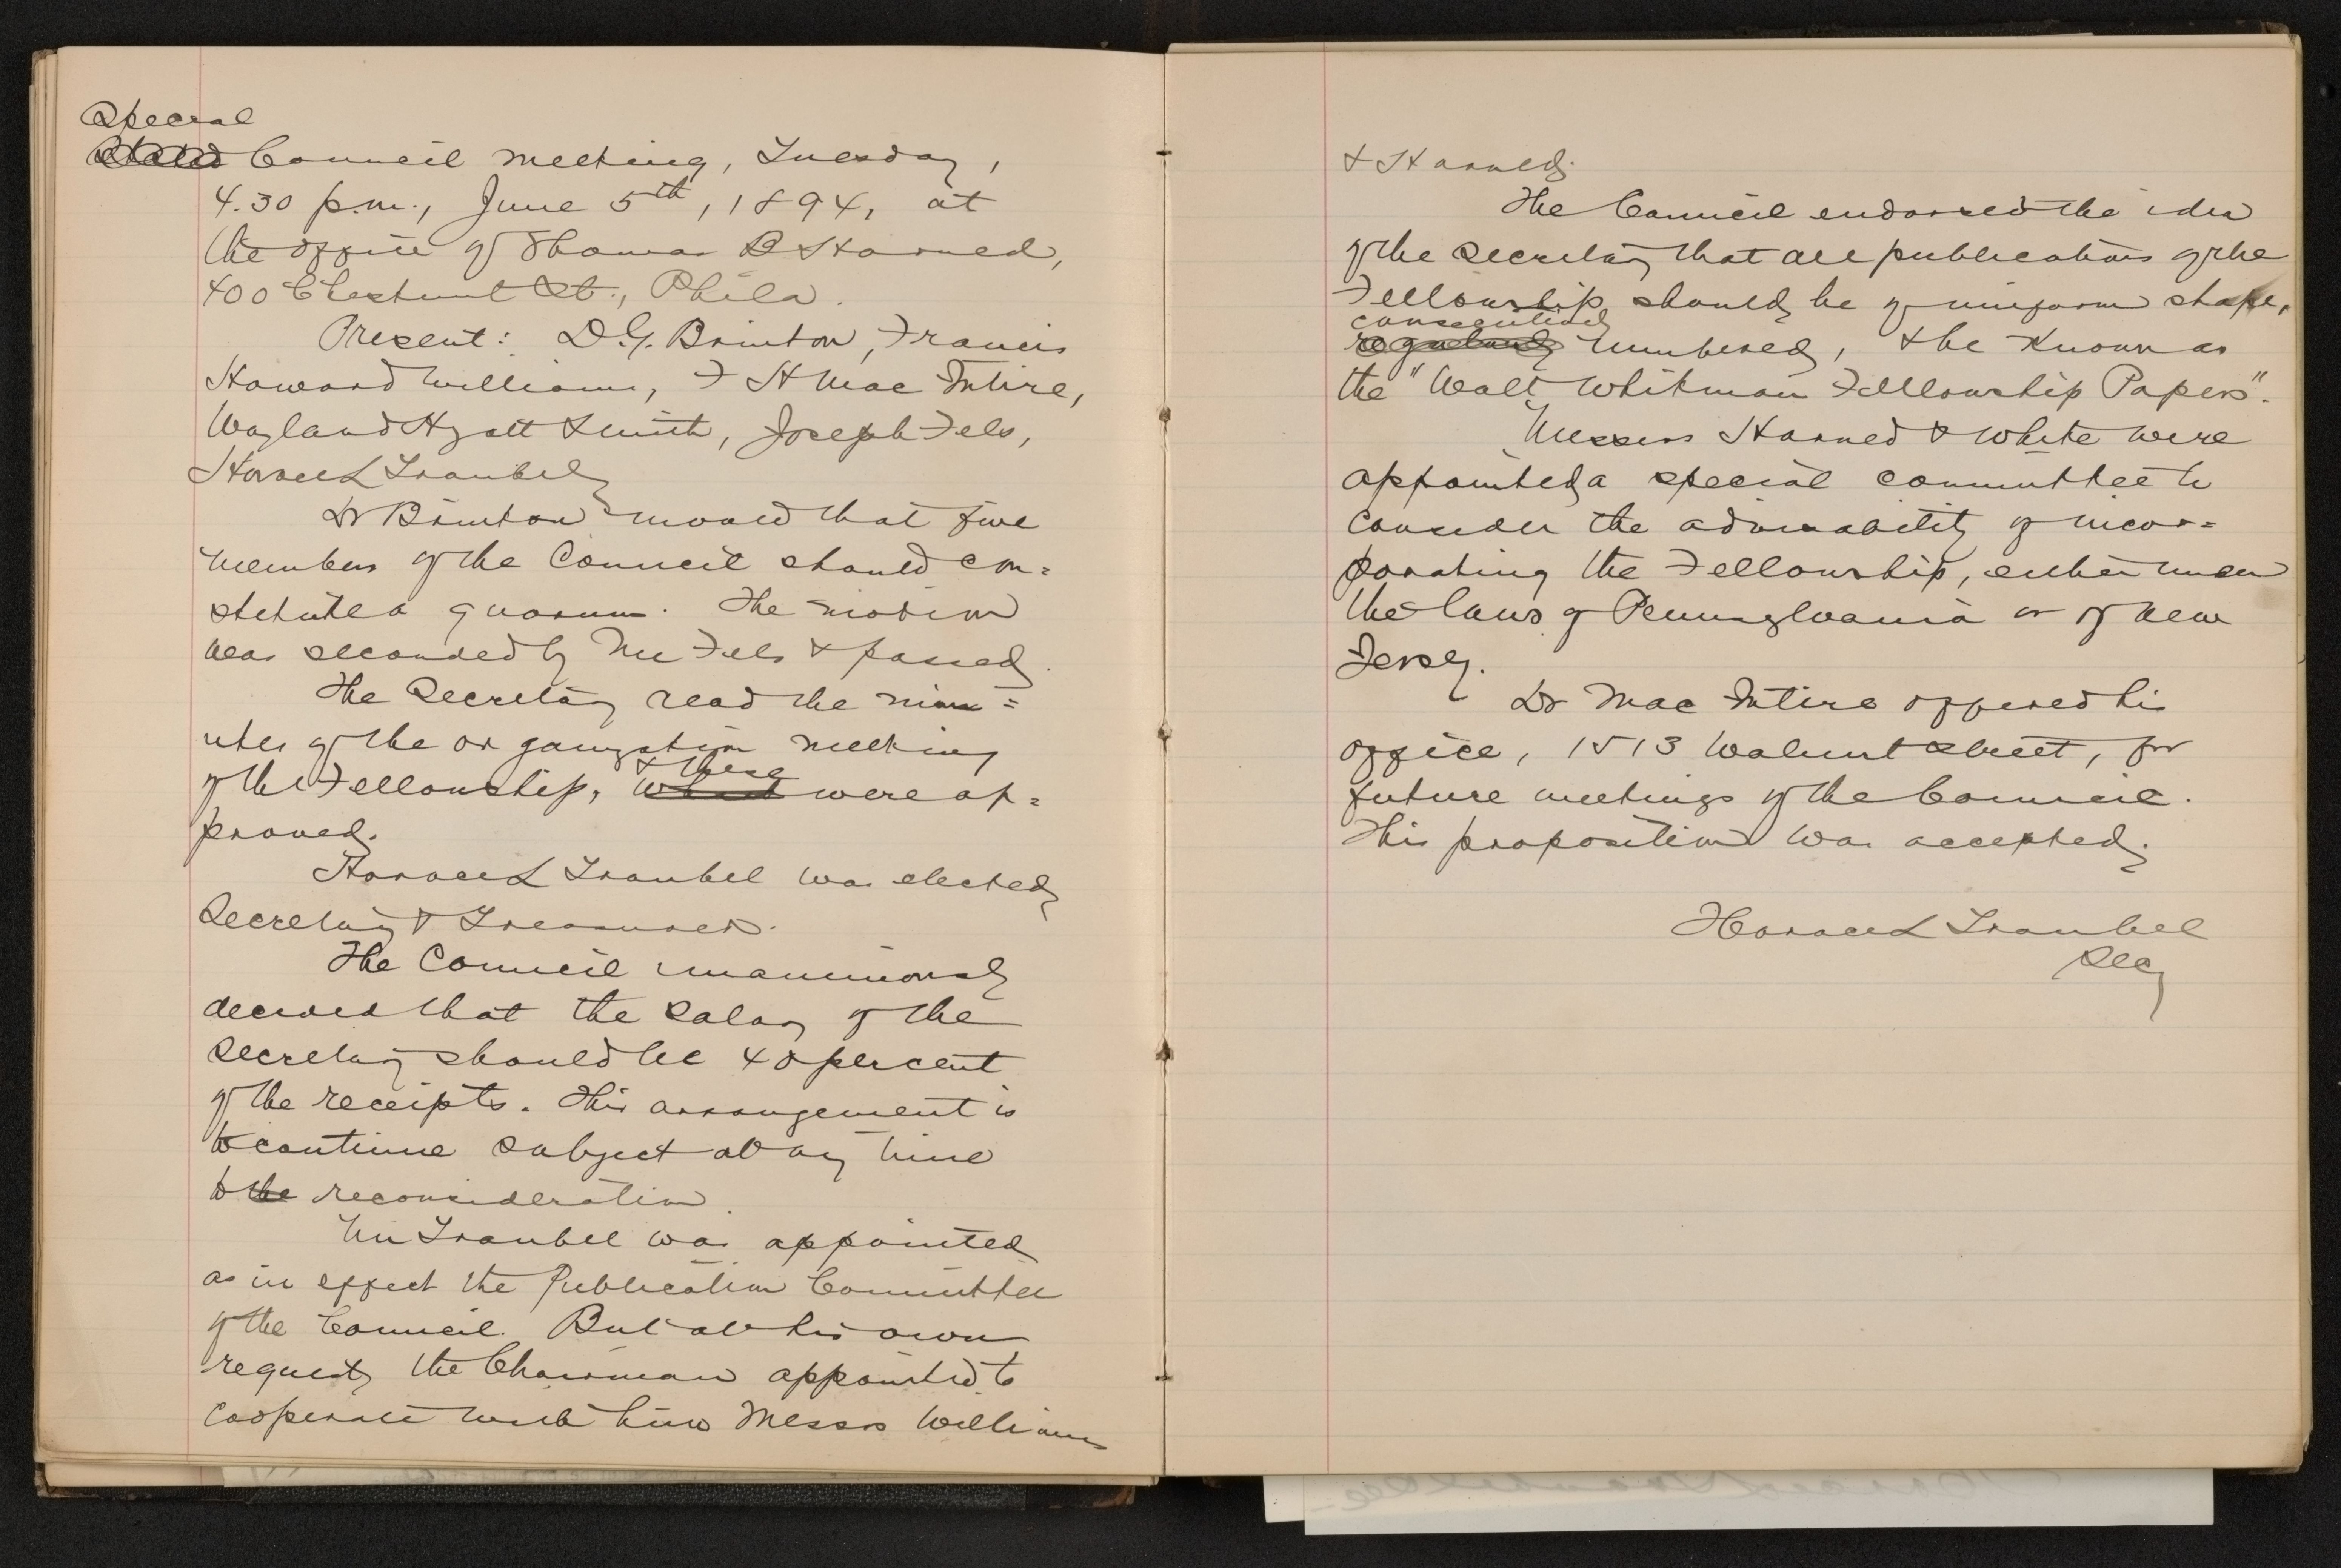 Special
Stated Council meeting, Tuesday,
4.30 p.m., June 5th, 1894, at
the office of Thomas B Harned,
400 Chestnut St., Phila.
Present: D.G. Brinton, Francis
Howard Williams, F H Mac Intire,
Wayland Hyatt Smith, Joseph Fels,
Horace L Traubel
Dr Brinton moved that five
members of the Council should con=
stitute a quorum. The motion
was seconded by Mr Fels & passed.
The Secretary read the min=
utes of the organization meeting
& these
of the Fellowship, which were ap=
proved.
Horace L Traubel was elected
Secretary & Treasurer.
The Council unanimously
decided that the salary of the
Secretary should be 40 percent
of the receipts. This arrangement is
to continue subject at any time
to the reconsideration.
Mr Traubel was appointed
as in effect the Publication Committee
of the Council. But at his own
request, the Chairman appointed to
cooperate with him Messrs Williams
& Harned.
The Council endorsed the idea
of the Secretary that all publications of the
Fellowship should be of uniform shape,
consecutively
regularly numbered, & be known as
the "Walt Whitman Fellowship Papers".
Messrs Harned & White were
appointed a special committee to
consider the advisability of incor=
porating the Fellowship, either under
the laws of Pennsylvania or of New
Jersey.
Dr Mac Intire offered his
office, 1513 Walnut street, for
future meetings of the Council.
This proposition was accepted.
Horace L Traubel
Secy